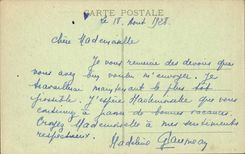 CARTE POSTALE
le 18 Août 1928.
Chère Mademoiselle
Je vous remercie des devoirs que
nous avez bien voulu m'envoyer. Je
travaillerai maintenant le plus tôt
possible. J'espère Mademoiselle que vous
continuez à passer de bonnes vacances.
Croyez Mademoiselle à mes sentiments
respectueux.
Madeleine